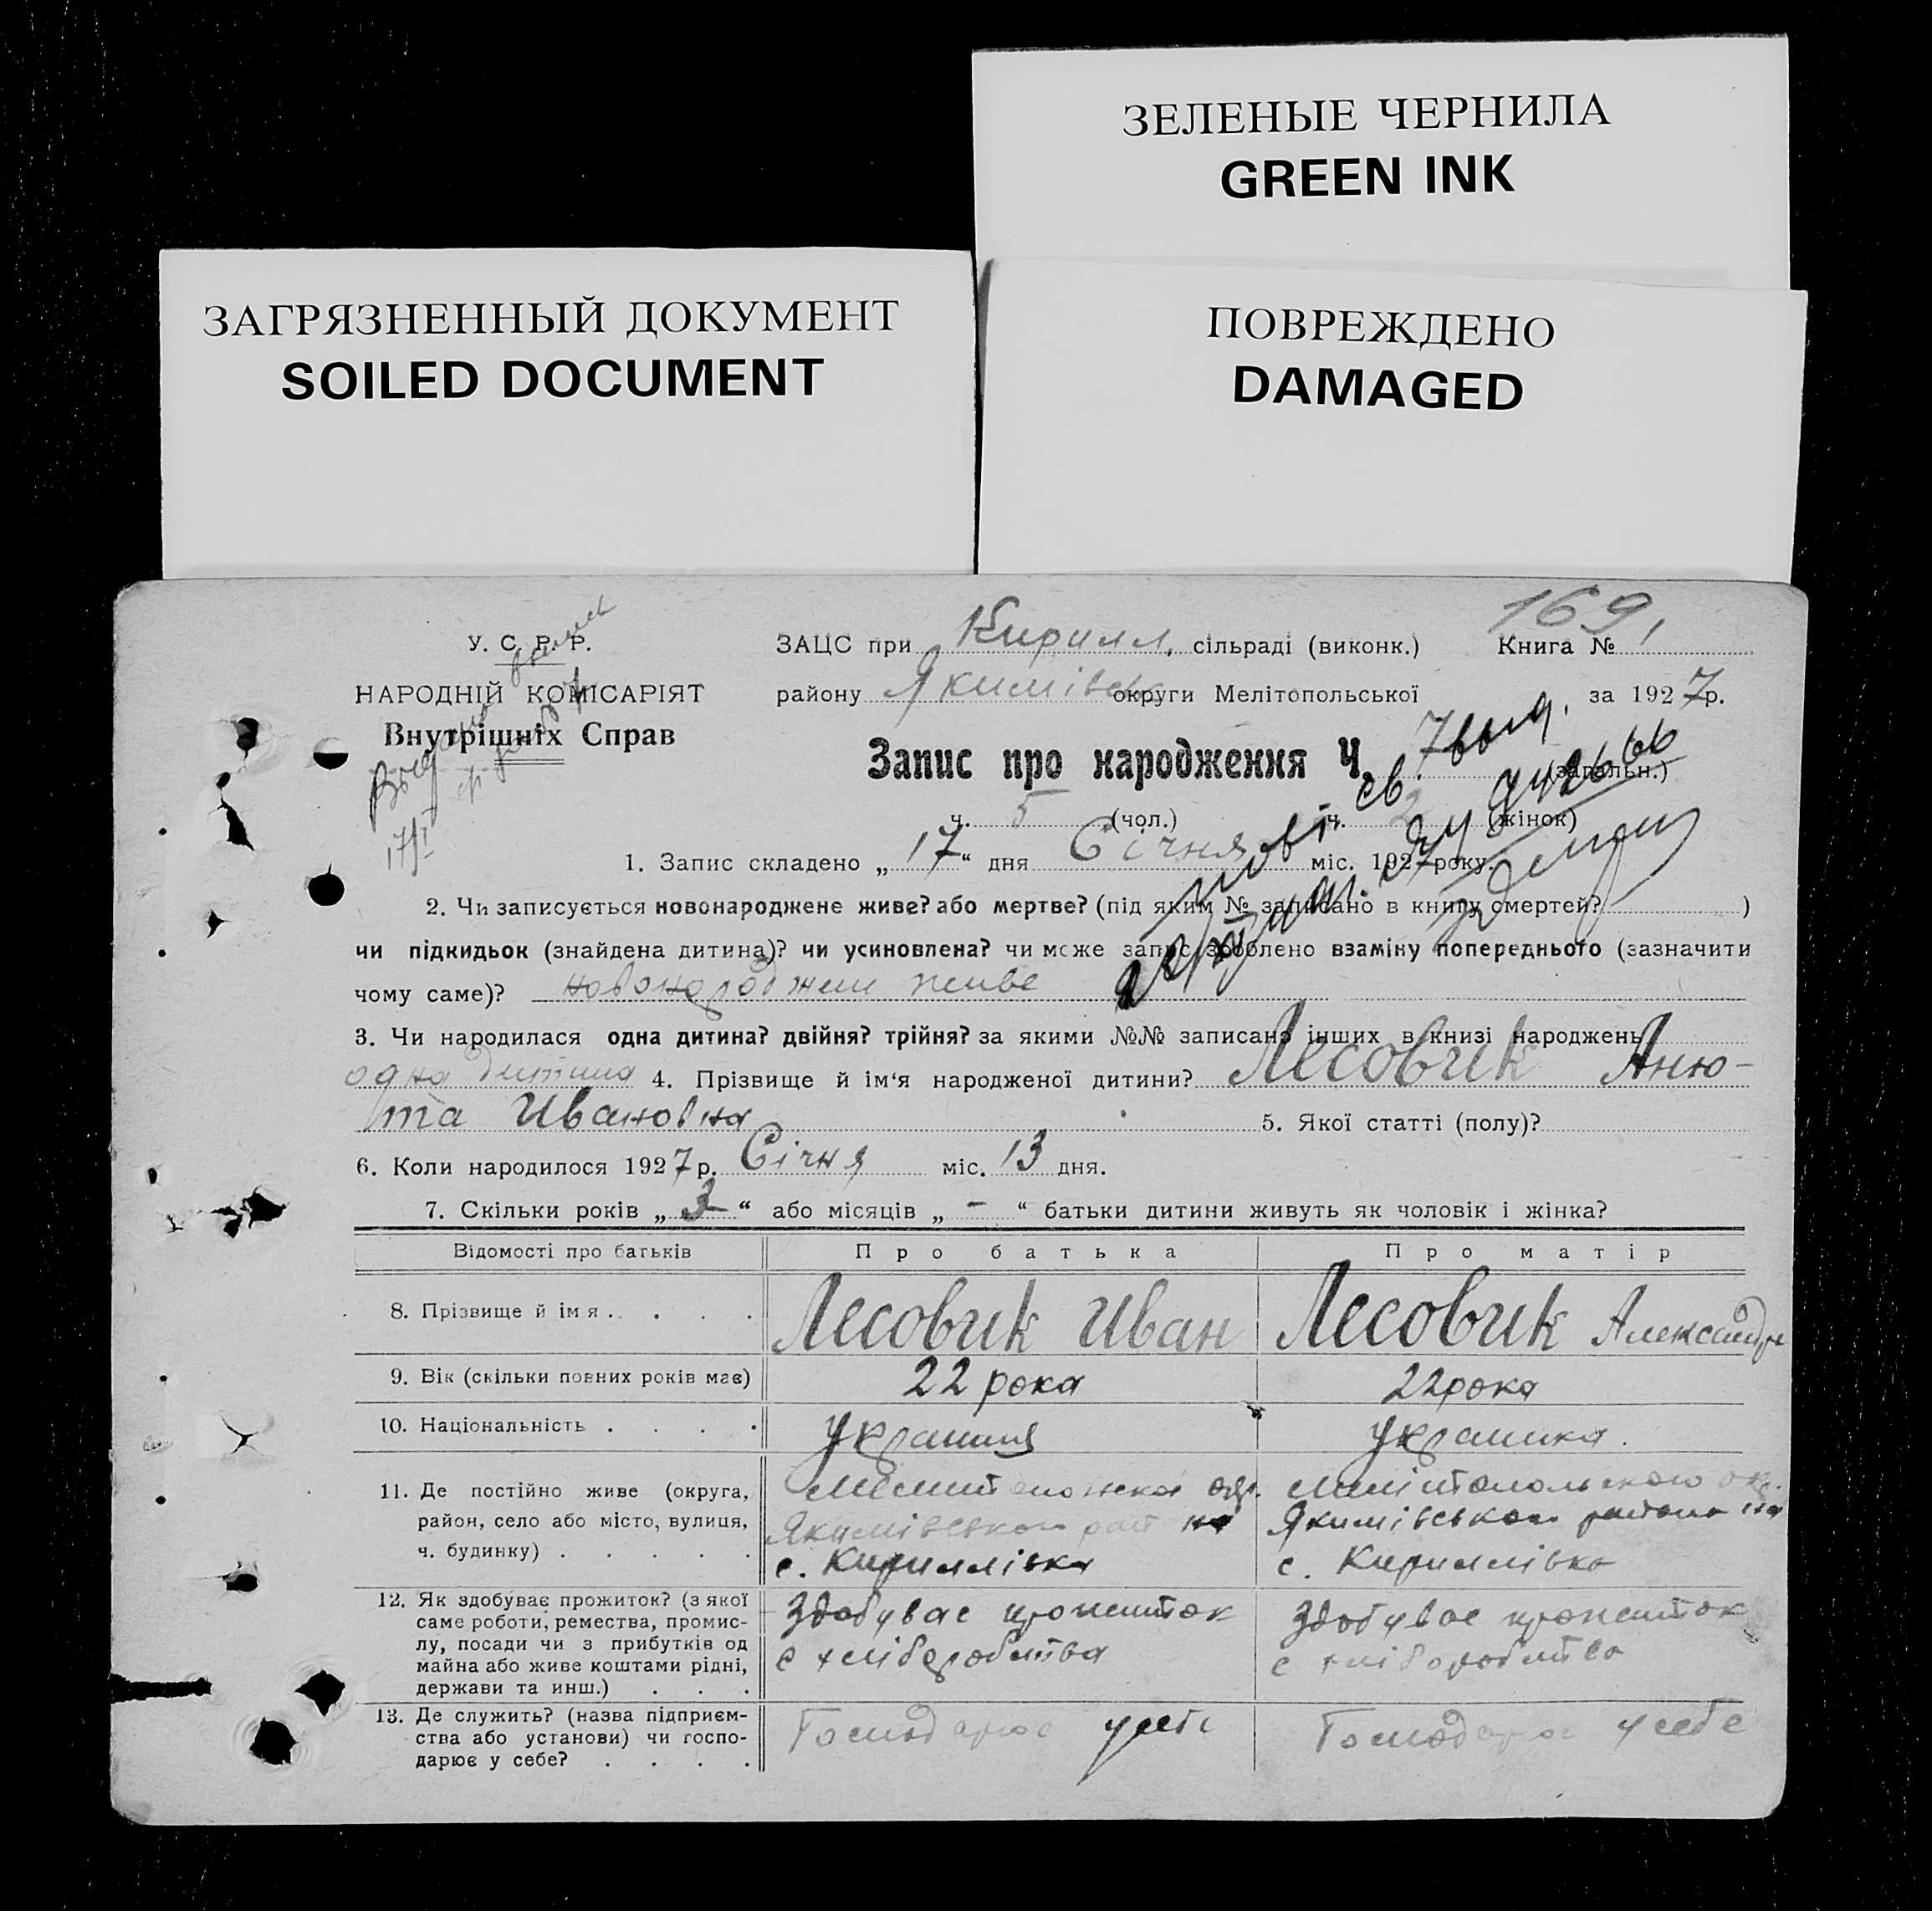 ЗЕЛЕНЫЕ ЧЕРНИЛА
GREEN INK
ЗАГРЯЗНЕННЫЙ ДОКУМЕНТ
SOILED DOCUMENT
ПОВРЕЖДЕНО
DAMAGED
169
У. С. Р. Р.
ЗАЦС при Кирилл. сільраді (виконк.) Книга № 1
НАРОДНІЙ КОМІСАРІЯТ
району Якимівськ округи Мелітопольської за 1927р.
Внутрішніх Справ
Запис про народження Ч. 7 (загальн.)
ч. 5 (чол.) ч. 2 (жінок)
17/I
1. Запис складено „17“ дня Січня міс. 1927 року.
2. Чи записується новонароджене живе? або мертве? (під яким № записано в книгу смертей? )
чи підкидьок (знайдена дитина)? чи усиновлена? чи може запис зроблено взаміну попереднього (зазначити
чому саме)? новонароджене живе
3. Чи народилася одна дитина? двійня? трійня? за якими №№ записано інших в книзі народжень
одна дитина 4. Прізвище й ім‘я народженої дитини? Лесовик Аню-
та Ивановна 5. Якої статті (полу)?
6. Коли народилося 1927 р. Січня міс. 13 дня.
7. Скільки років „3“ або місяців „-“ батьки дитини живуть як чоловік і жінка?
Відомості про батьків Про батька Про матір
8. Прізвище й ім я Лесовик Иван Лесовик Александра
9. Вік (скільки повних років має) 22 рока 22 рока
10. Національність украинец украинка.
11. Де постійно живе (округа, окр.
район, село або місто, вулиця, Якимівського району Якимівського району
ч. будинку) с. Кириллівка с. Кириллівка
12. Як здобуває прожиток? (з якої Здобуває прожиток Здобуває прожиток
саме роботи, ремества, промис-
лу, посади чи з прибутків од с хліборобства с хліборобства
майна або живе коштами рідні,
держави та инш.)
13. Де служить? (назва підприєм- Господарює у себе Господарює у себе
ства або установи) чи госпо-
дарює у себе?